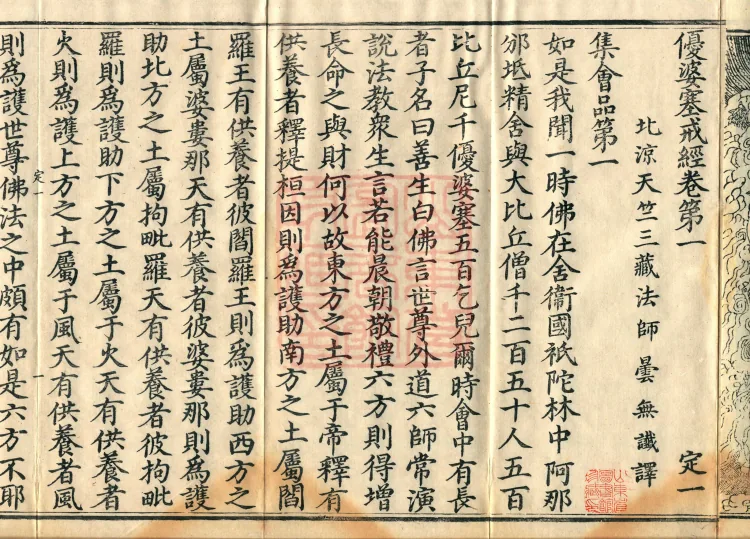 優婆塞戒經卷第一 定一
北涼天竺三藏法師曇無讖譯
集會品第一
如是我聞一時佛在舍衞國祇陀林中阿那
邠坻精舍與大比丘僧千二百五十人五百
比丘尼千優婆塞五百乞兒爾時會中有長
者子名曰善生白佛言世尊外道六師常演
說法教衆生言若能晨朝敬禮六方則得增
長命之與財何以故東方之土屬于帝釋有
供養者釋提桓因則爲護助南方之土屬閻
羅王有供養者彼閻羅王則爲護助西方之
土屬婆婁那天有供養者彼婆婁那則爲護
助北方之土屬拘毗羅天有供養者彼拘毗
羅則爲護助下方之土屬于火天有供養者
火則爲護上方之土屬于風天有供養者風
定一 一
則爲護世尊佛法之中頗有如是六方不耶